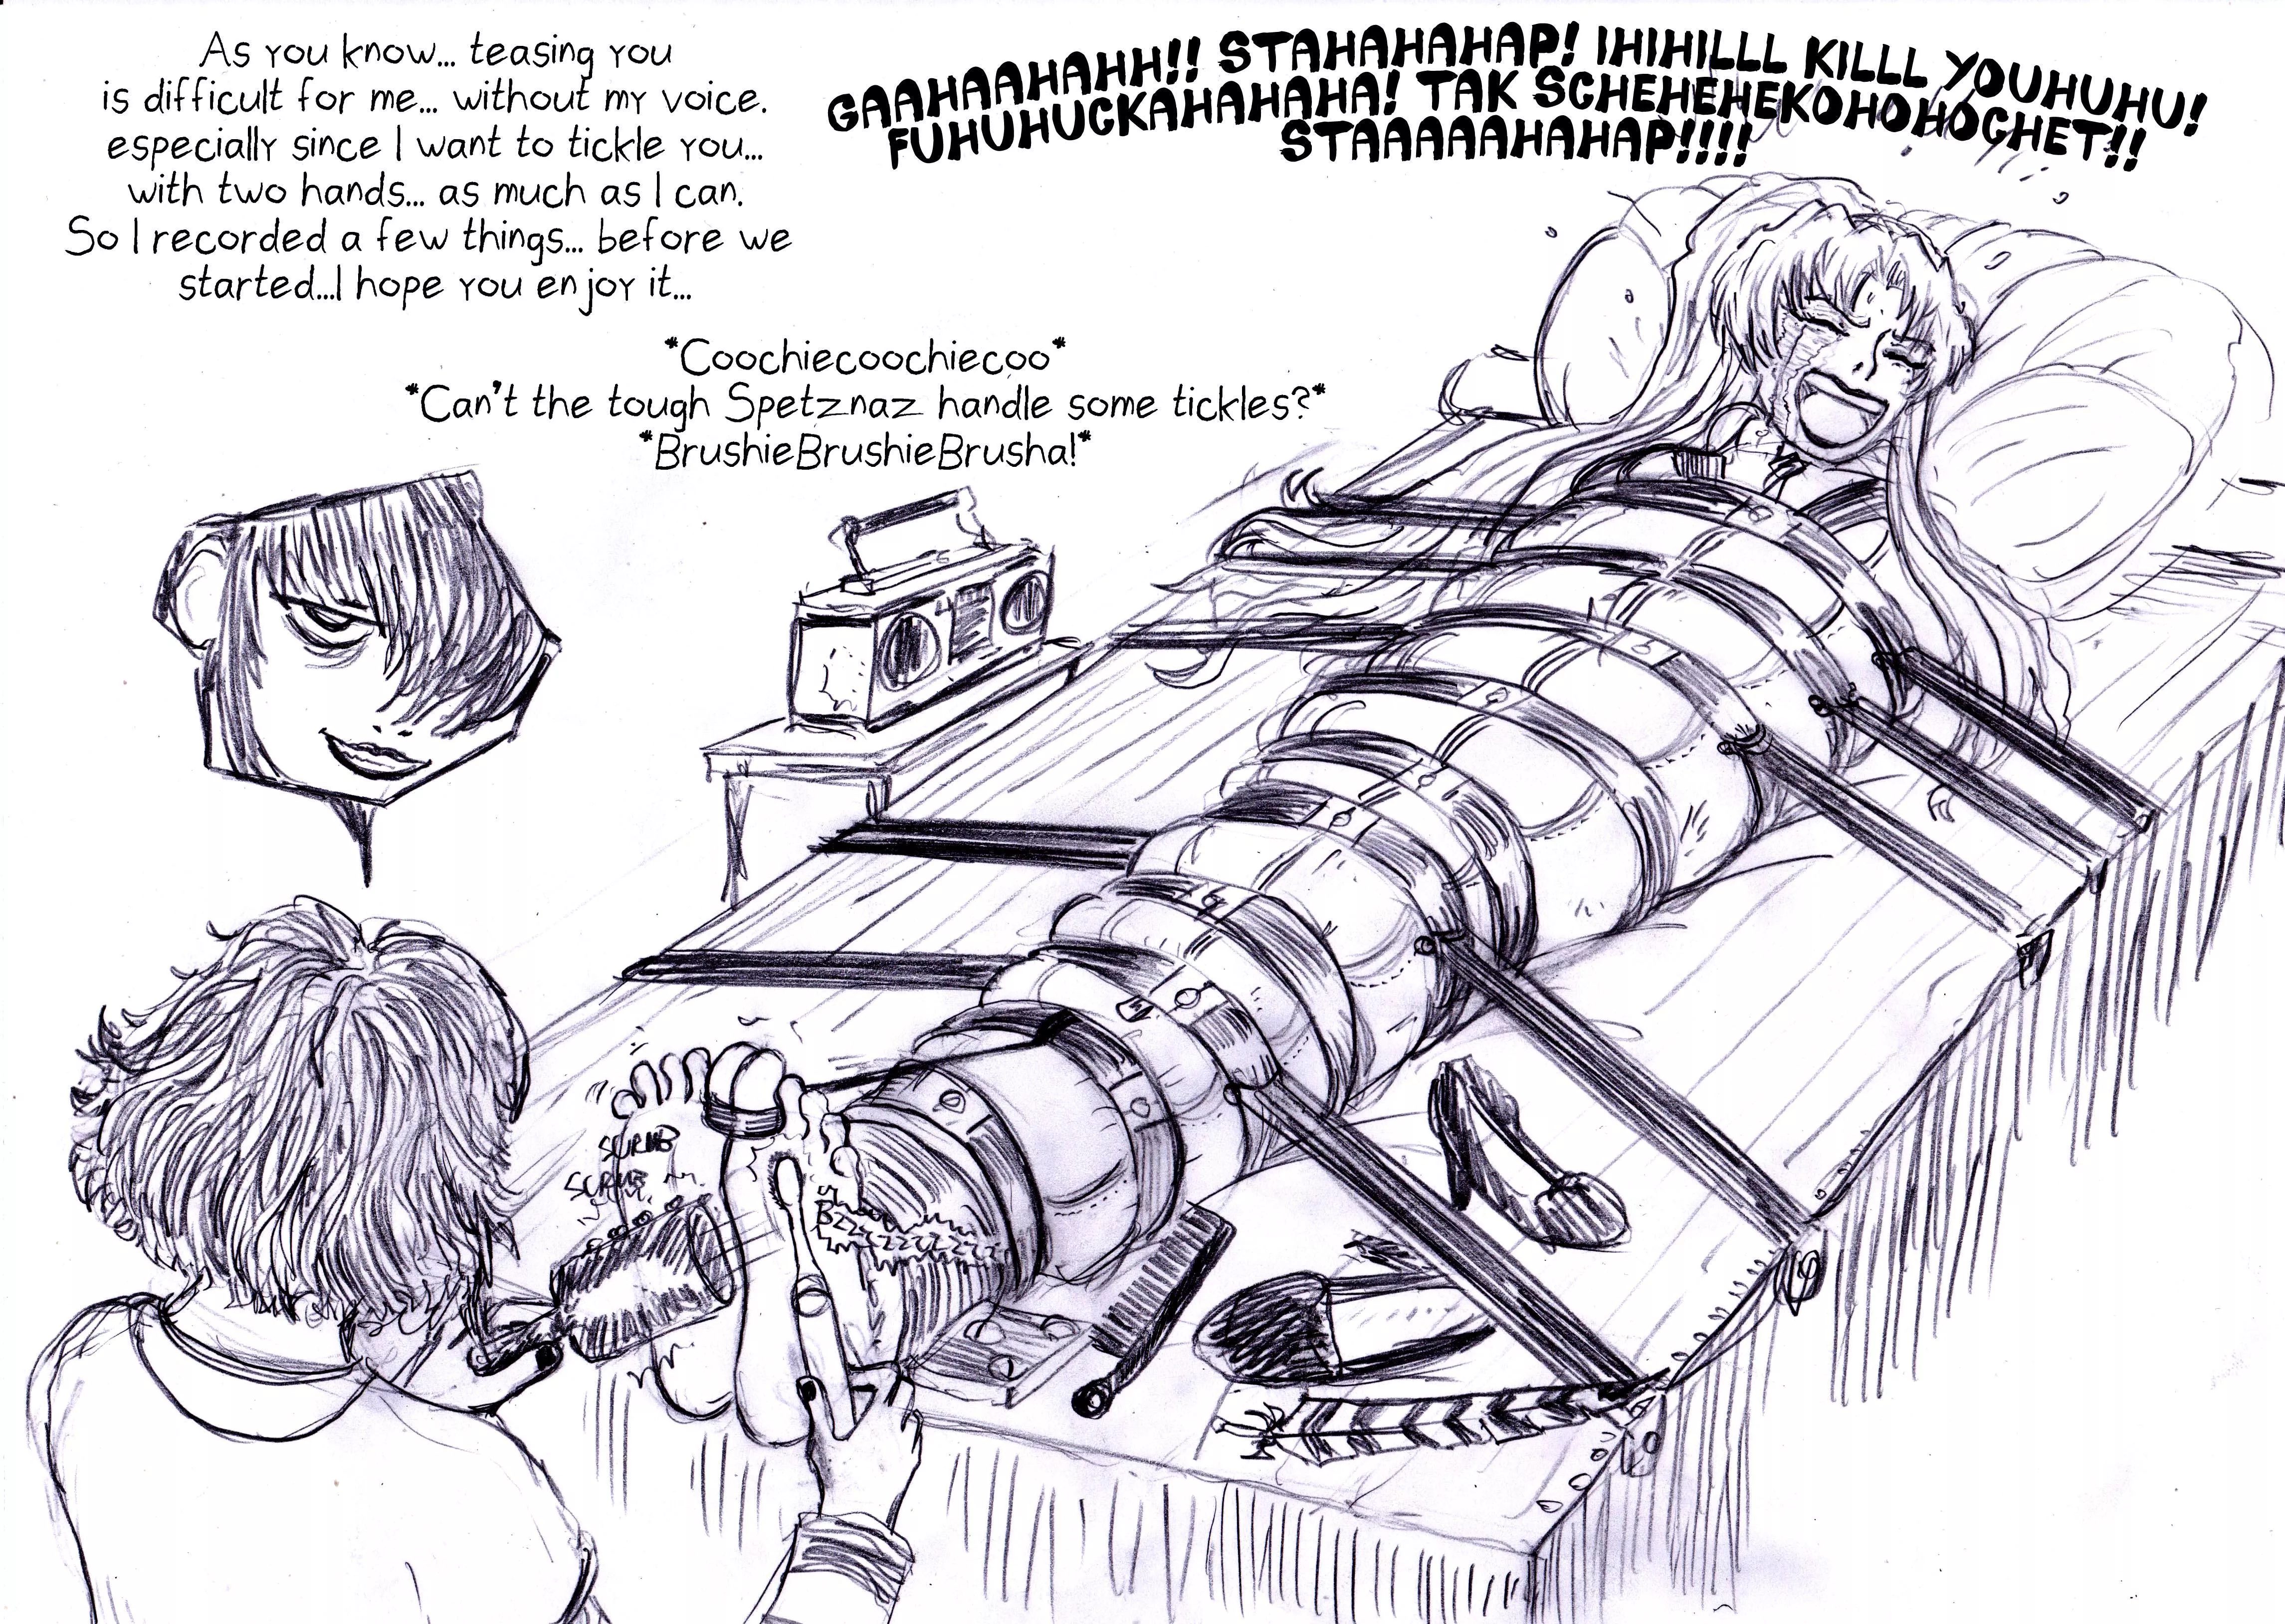 As you know... teasing you
is difficult for me... without my voice.
especially since I want to tickle you...
with two hands... as much as I can.
So I recorded a few things... before we
started...I hope you enjoy it...
GAAHAAHAHH!! STAHAHAHAP! IHIHILLL KILLL YOUHUHU!
FUHUHUCKAHAHAHA! TAK SCHEHEHEKOHOHOCHET!!
STAAAAAHAHAP!!!!
*Coochiecoochiecoo*
*Can't the tough Spetznaz handle some tickles?*
*BrushieBrushieBrusha!*
SCRUB
SCRUB